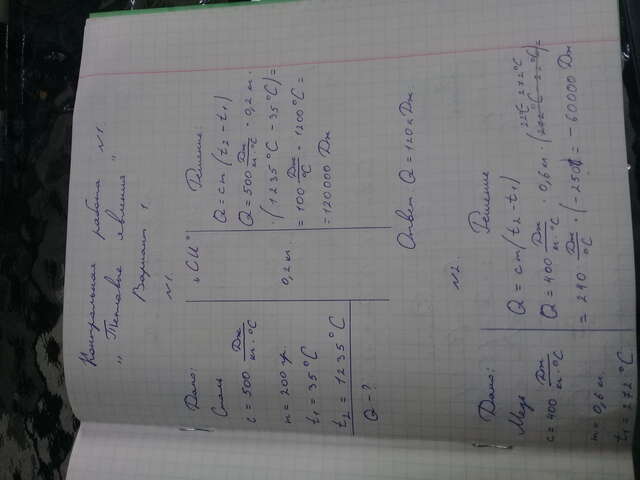 Контрольная работа №1.
„Тепловые явления"
Вариант 1.
№1.
Дано:
Сталь
c = 500 Дж/кг·°C
m = 200 гр.
t₁ = 35°C
t₂ = 1235°C
Q - ?
„СИ"
0,2 кг.
Решение:
Q = cm(t₂ - t₁)
Q = 500 Дж/кг·°C · 0,2 кг ·
· (1235°C - 35°C) =
= 100 Дж/°C · 1200°C =
= 120000 Дж
Ответ Q = 120 кДж.
№2.
Дано:
Медь
c = 400 Дж/кг·°C
m = 0,6 кг
t₁ = 272°C
Решение
Q = cm(t₂ - t₁)
22°C 272°C
Q = 400 Дж/кг·°C · 0,6 кг ·
= 240 Дж/°C · (-250°) = - 60000 Дж